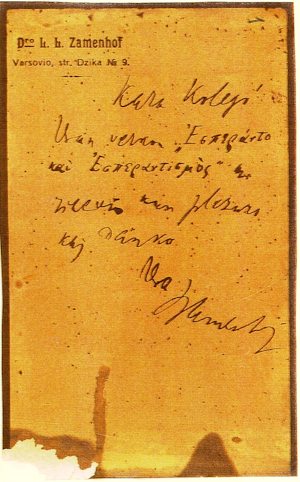 Dro L. L. Zamenhof
Varsovio, str. Dzika № 9.
Kara Kolego!
Vian verkon "Ἐσπεράντο
καὶ Ἐσπεραντισμὸς" mi
ricevis kun plezuro
kaj danko.
Via
Zamenhof